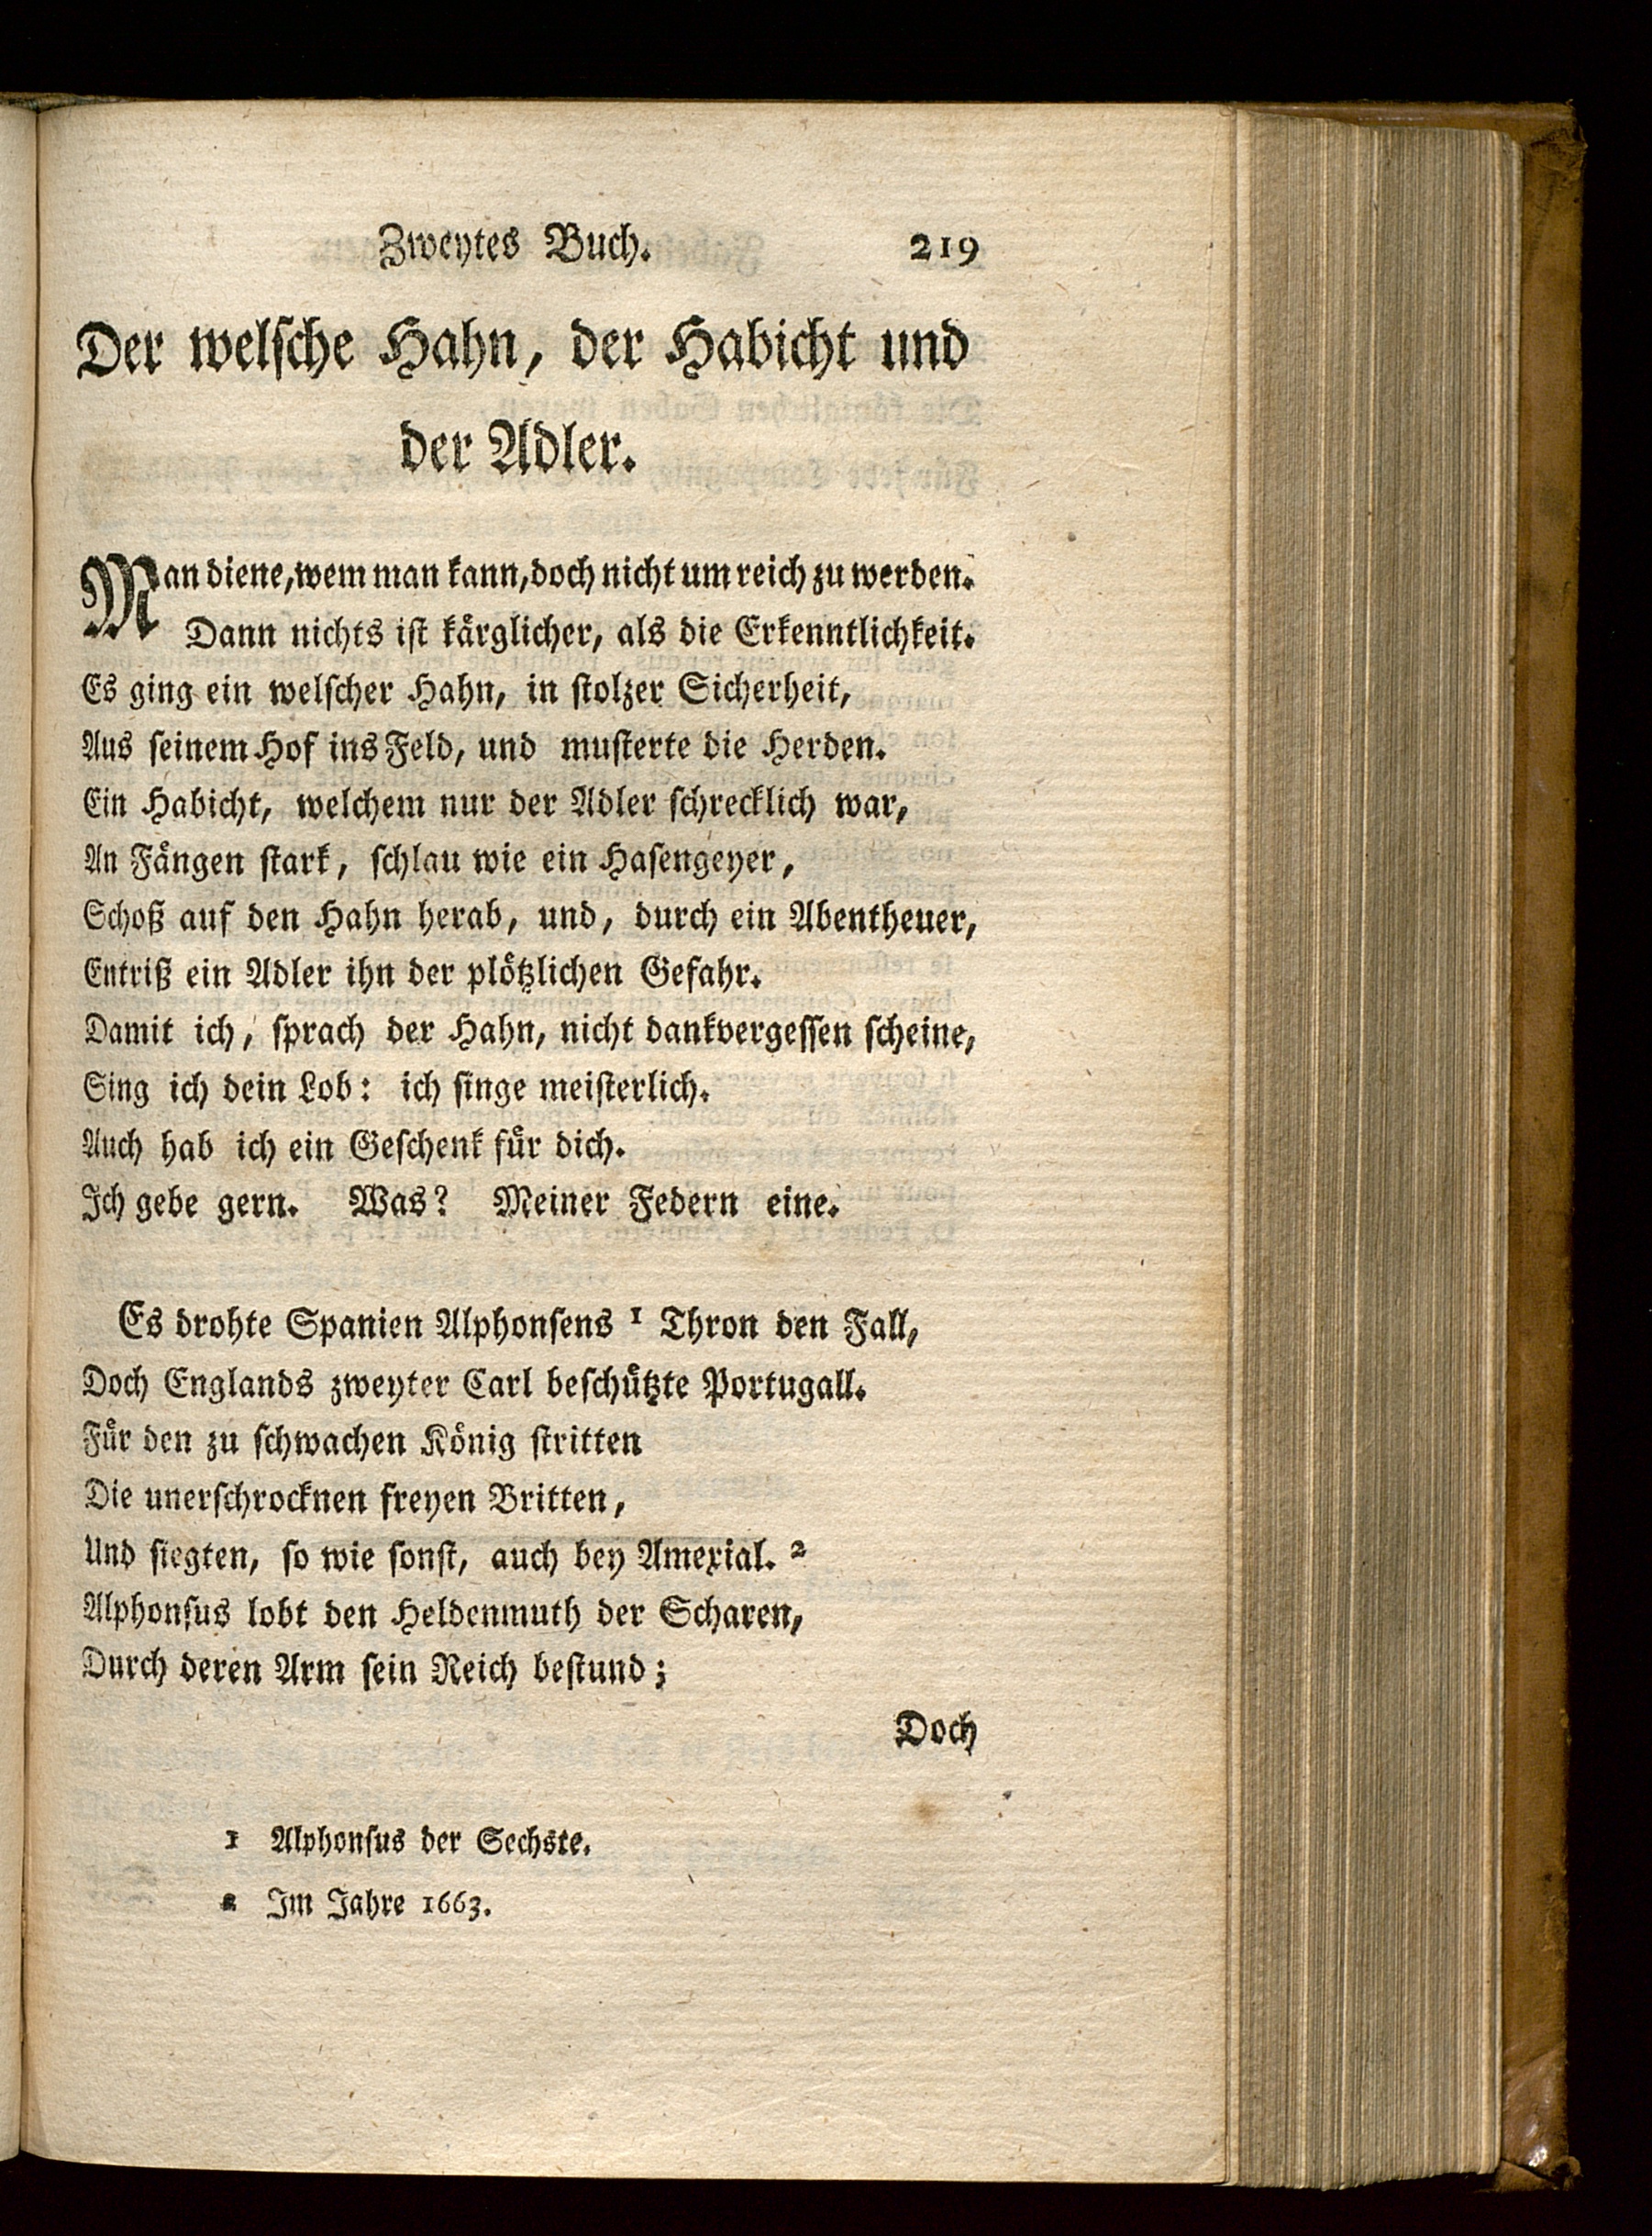 Zweytes Buch. 219
Der welſche Hahn, der Habicht und
der Adler.
Man diene, wem man kann, doch nicht um reich zu werden.
Dann nichts iſt kårglicher, als die Erkenntlichkeit.
Es ging ein welſcher Hahn, in ſtolzer Sicherheit,
Aus ſeinem Hof ins Feld, und muſterte die Herden.
Ein Habicht, welchem nur der Adler ſchrecklich war,
An Fängen ſtark, ſchlau wie ein Haſengeyer,
Schoß auf den Hahn herab, und, durch ein Abentheuer,
Entriß ein Adler ihn der plötzlichen Gefahr.
Damit ich, ſprach der Hahn, nicht dankvergeſſen ſcheine,
Sing ich dein Lob: ich ſinge meiſterlich.
Auch hab ich ein Geſchenk für dich.
Ich gebe gern. Was? Meiner Federn eine.
Es drohte Spanien Alphonſens ¹ Thron den Fall,
Doch Englands zweyter Carl beſchützte Portugall.
Für den zu ſchwachen König ſtritten
Die unerſchrocknen freyen Britten,
Und ſiegten, ſo wie ſonſt, auch bey Amexial. ²
Alphonſus lobt den Heldenmuth der Scharen,
Durch deren Arm ſein Reich beſtund;
Doch
1 Alphonſus der Sechste.
2 Im Jahre 1663.